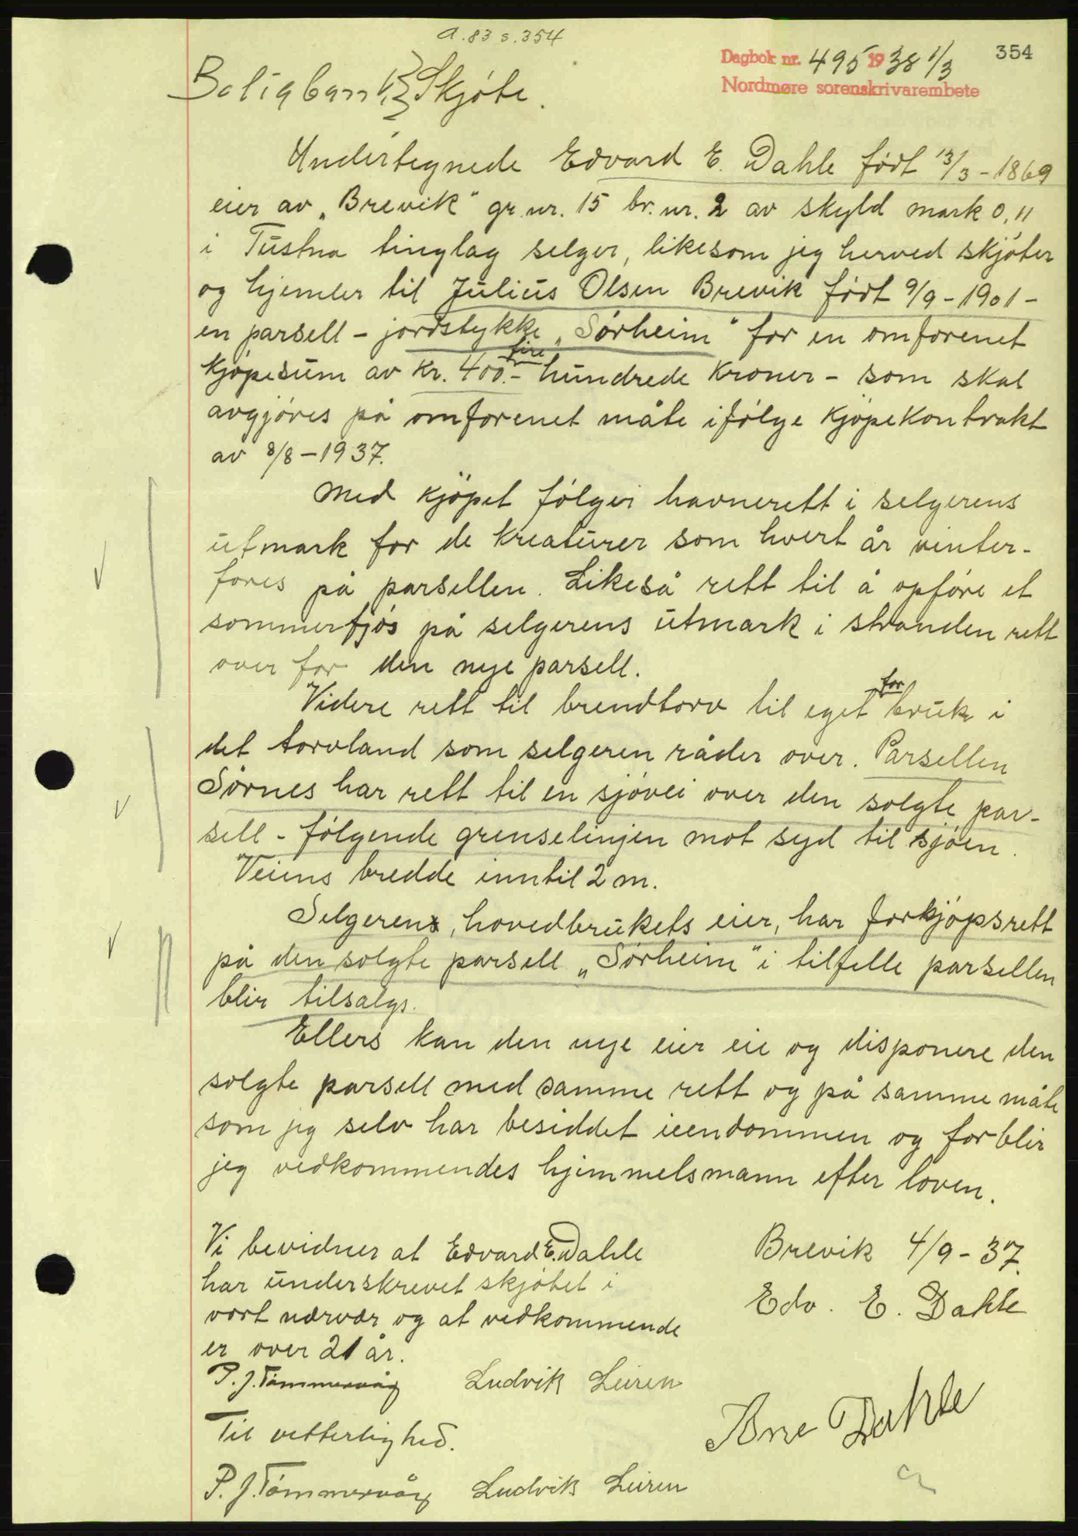 a. 83 s. 354
Dagbok nr. 495 1938 1/3
354
Nordmøre sorenskrivarembete
Skjøte.
Undertegnede Edvard E. Dahle født 13/3 - 1869
eier av „Brevik" gr. nr. 15 br. nr. 2 av skyld mark 0,11
i Tustna tinglag selger, likesom jeg herved skjøter
og hjemler til Julius Olsen Brevik født 9/9 - 1901 -
en parsell - jordstykke „Sørheim" for en omforenet
kjøpesum av kr. 400.- fire hundrede kroner - som skal
avgjøres på omforenet måte ifølge kjøpekontrakt
av 8/8 - 1937.
Med kjøpet følger havnerett i selgerens
utmark for de kreaturer som hvert år vinter-
fores på parsellen. Likeså rett til å opføre et
sommerfjøs på selgerens utmark i stranden rett
over for den nye parsell.
Videre rett til brendtorv til eget forbruk i
det torvland som selgeren råder over. Parsellen
Sørnes har rett til en sjøvei over den solgte par-
sell - følgende grenselinjen mot syd til sjøen.
Veiens bredde inntil 2 m.
Selgeren, hovedbrukets eier, har forkjøpsrett
på den solgte parsell „Sørheim" i tilfelle parsellen
blir tilsalgs.
Ellers kan den nye eier eie og disponere den
solgte parsell med samme rett og på samme måte
som jeg selv har besiddet eiendommen og forblir
jeg vedkommendes hjimmelsmann efter loven.
Brevik 4/9 - 37.
Edv. E. Dahle
Vi bevidner at Edvard E. Dahle
har underskrevet skjøtet i
vort nærvær og at vedkommende
er over 21 år.
P. J. Tømmervåg Ludvik Leiren
Ane Dahle
Til vitterlighed.
P. J. Tømmervåg Ludvik Leiren